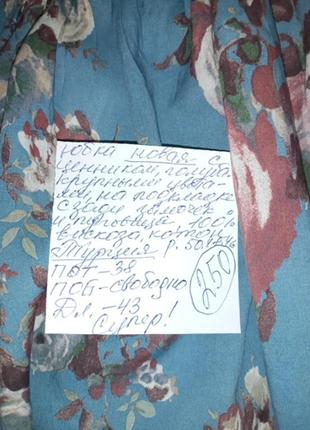 юбка новая с
ценником, голуба
крупными цвета-
ми, на подкладке
сзади замочек
и пуговица 100%
вискоза, котон
Турция р. 50
ПОТ-38
ПОБ-свободно
Дл. -43
Супер!
250